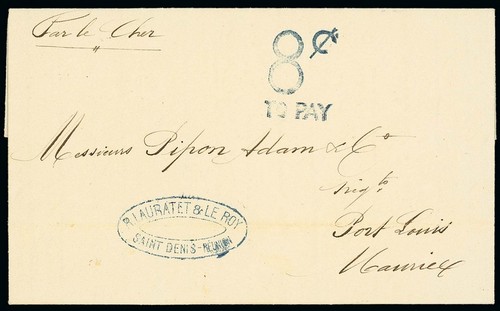 Par le Cher
8 ¢
TO PAY
Messieurs Pipon Adam & Co
Port Louis
Maurice
R. LAURATET & LE ROY
SAINT DENIS - RÉUNION